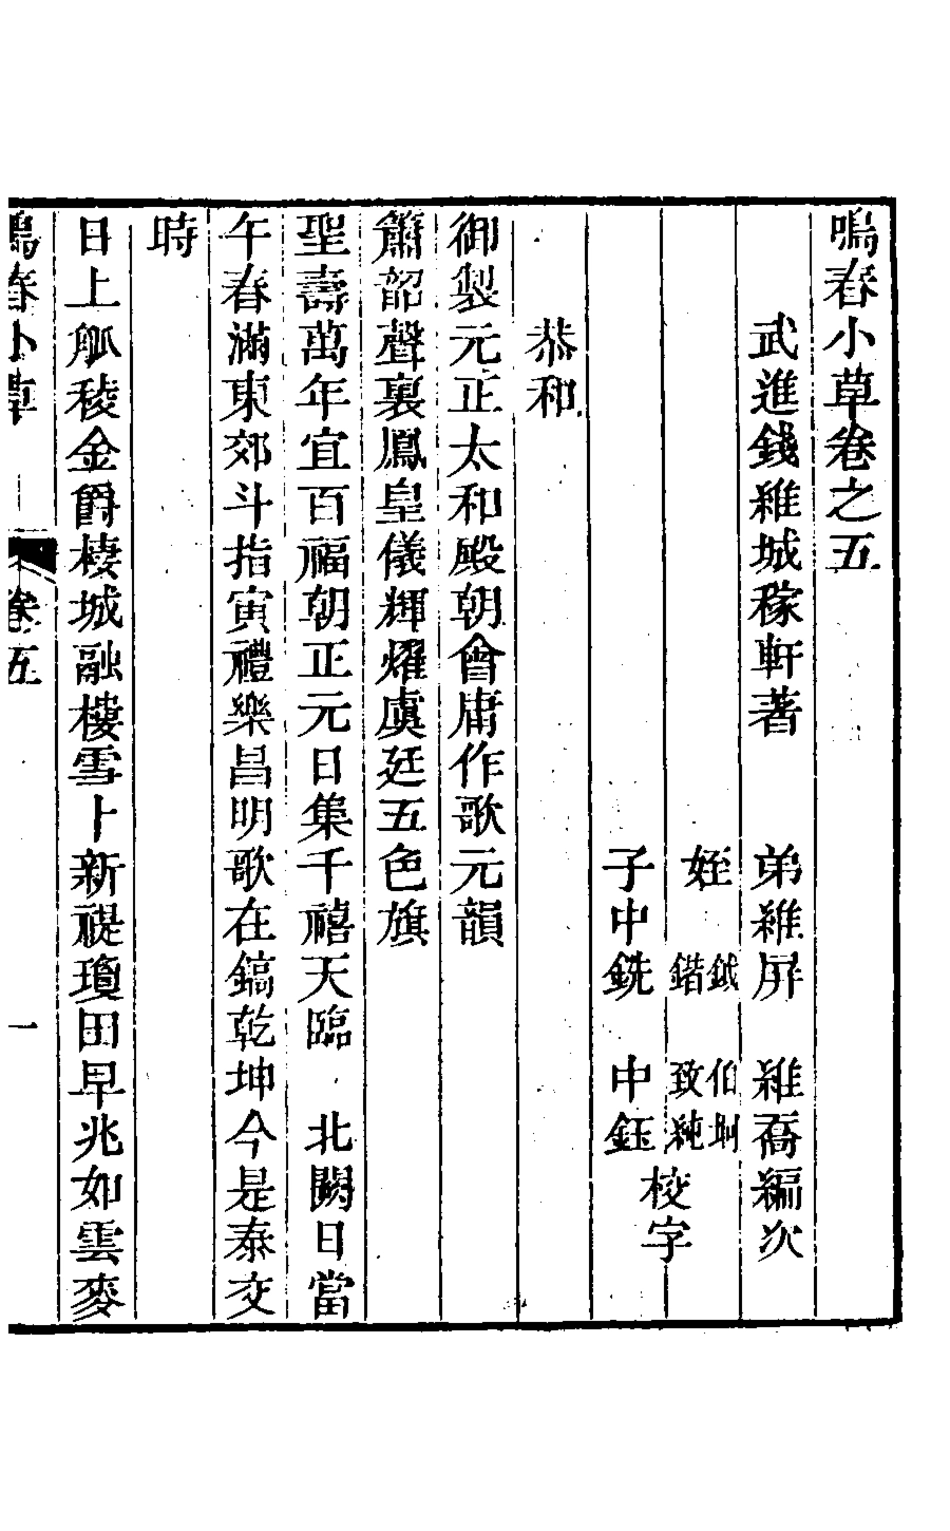 鳴春小草卷之五
武進錢維城稼軒著　　弟維屏　維喬編次
姪　鉞　伯坰
鍇　致純　校字
子中銑　中鈺
恭和
御製元正太和殿朝會庸作歌元韻
簫韶聲裏鳳皇儀輝燿虞廷五色旗
聖壽萬年宜百福朝正元日集千禧天臨　北闕日當
午春滿東郊斗指寅禮樂昌明歌在鎬乾坤今是泰交
時
日上觚稜金爵棲城融樓雪卜新禔瓊田早兆如雲麥
鳴春小草　卷五　一